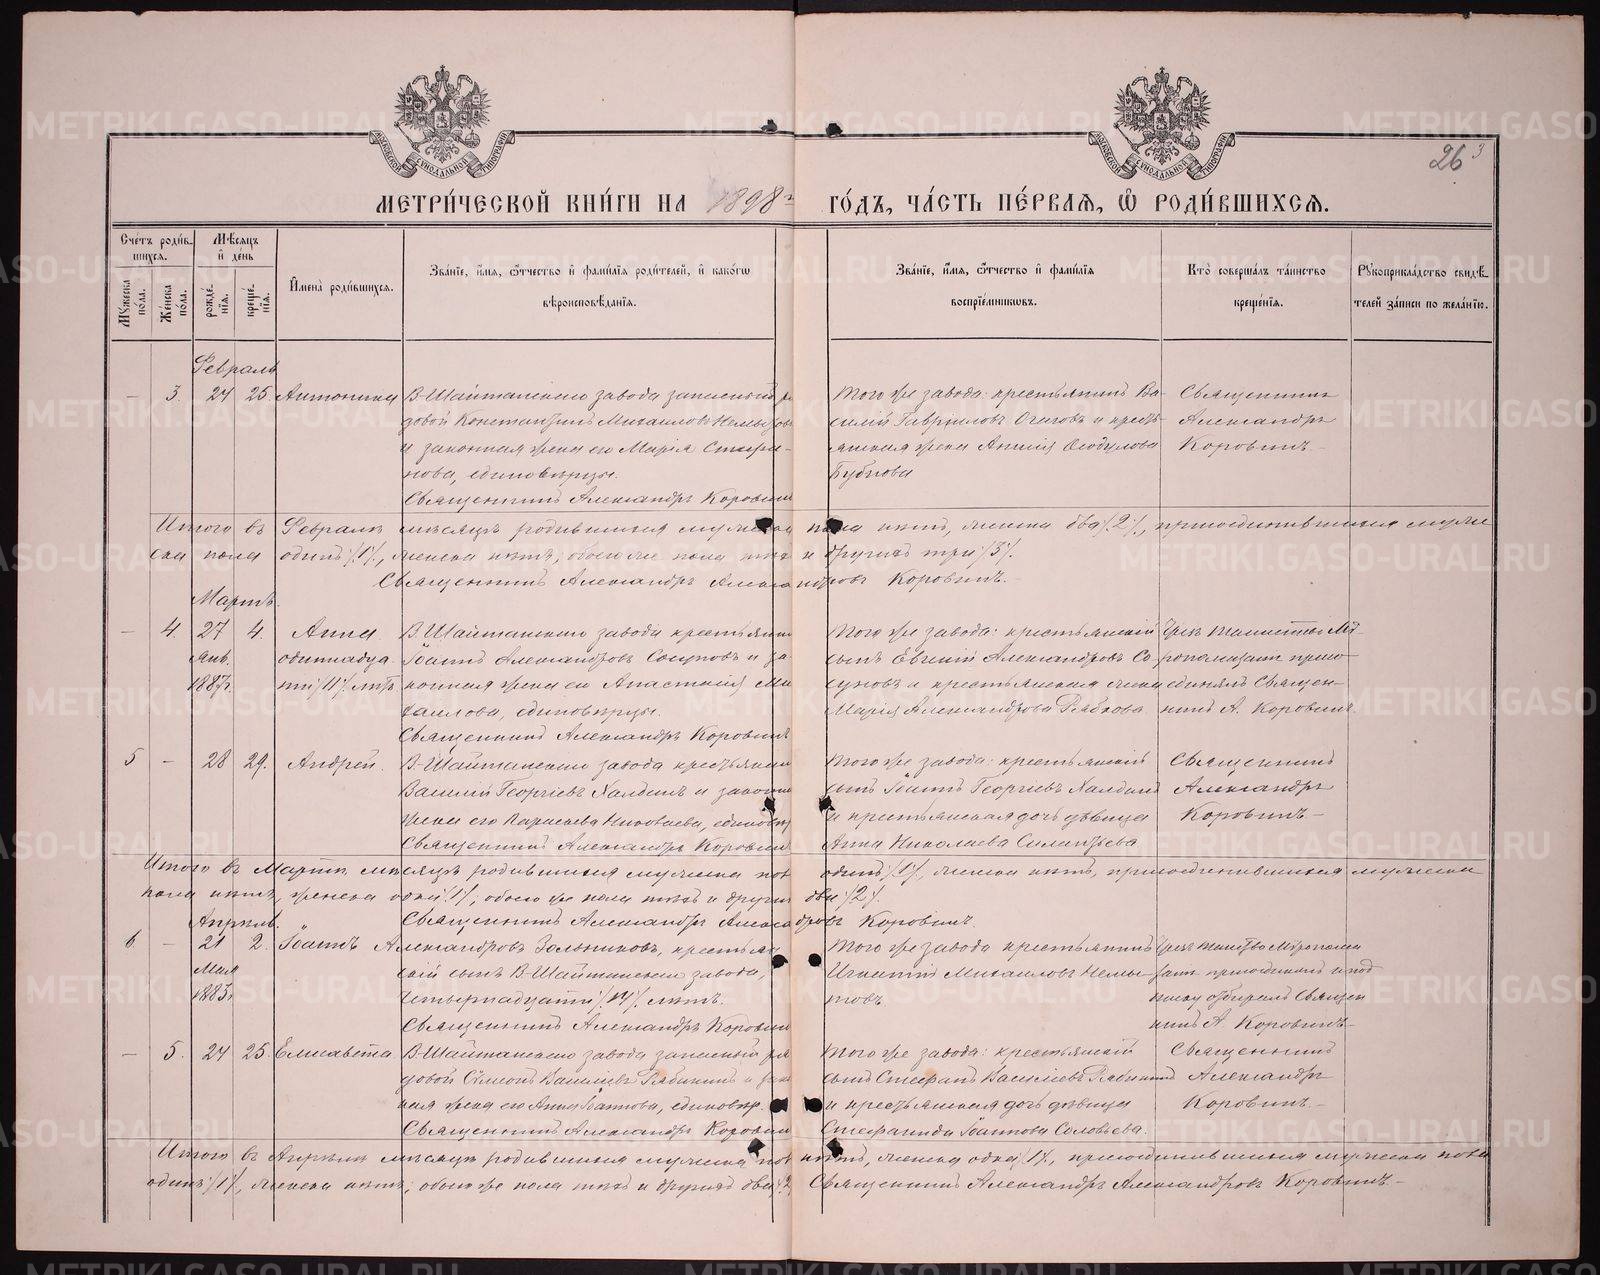 МЕТРИ́ЧЕСКОЙ КНИ́ГИ НА 1898 г. ГО́ДЪ, ЧА́СТЬ ПЕ́РВАЯ, Ѽ РОДИ́ВШИХСЯ.
26 3
Сче́тъ роди́вшихся.
Мѣсяцъ и́ де́нь
Мꙋжеска по́ла.
Же́нска по́ла.
рожде́нїя.
креще́нїя.
И҆мена̀ роди́вшихся.
Зва́нїе, и҆́мя, ѻ҆́тчество и҆ фамі́лїя роди́телей, и҆ како́гѡ вѣроисповѣ́данїя.
Зва́нїе, и҆́мя, ѻ҆́тчество и҆ фамі́лїя воспрїе́мникѡвъ.
Кто̀ соверша́лъ та́инство креще́нїя.
Рꙋкоприкла́дство свидѣ́телей за́писи по жела́нїю.
Февраль
— 3. 24 25. Антонина
В-Шайтанскаго завода запасный ря-
довой Константинъ Михаиловъ
и законная жена его Марія
нова, единовѣрцы.
Священникъ Александръ Коровинъ
Того же завода: крестьянинъ Ва-
силій Гавріиловъ и кресть-
янская жена
Бубнова
Священникъ
Александръ
Коровинъ.
Итого въ Февралѣ мѣсяцѣ родившихся мужеска пола нѣтъ, женска два /2/, присоединившихся муже
ска пола одинъ /1/, женска нѣтъ, обоего же пола тѣхъ и другихъ три /3/.
Священникъ Александръ Александровъ Коровинъ.
Мартъ.
— 4. 27 4. Анна
Янв.
1887г.
одиннадца
ти /11/ лѣтъ
В-Шайтанскаго завода крестьянинъ
Іоаннъ Александровъ Сосуновъ и за-
конная жена его Анастасія Ми
хаилова, единовѣрцы.
Священникъ Александръ Коровинъ
Того же завода: крестьянскій
сынъ Евгеній Александровъ Со
суновъ и крестьянская жена
Марія Александрова Рябкова
Чрезъ таинство Мѵ-
ропомазанія присо-
единялъ Священ-
никъ А. Коровинъ.
5 — 28 29. Андрей
В-Шайтанскаго завода крестьянинъ
Василій Георгіевъ Халдинъ и законная
жена его Параскева Николаева, единовѣр
Священникъ Александръ Коровинъ
Того же завода: крестьянскій
сынъ Іоаннъ Георгіевъ Халдинъ
и крестьянская дочь дѣвица
Анна Николаева
Священникъ
Александръ
Коровинъ—
Итого въ Мартѣ мѣсяцѣ родившихся мужеска пола одинъ /1/, женска нѣтъ, присоединившихся мужеска
пола нѣтъ, женска одна /1/, обоего же пола тѣхъ и другихъ два /2/.
Священникъ Александръ Александровъ Коровинъ.
Апрѣль.
6 — 21 2. Іоаннъ Александровъ Зольниковъ, крестьян-
Мая
1883г
скій сынъ В-Шайтанскаго завода,
четырнадцати /14/ лѣтъ.
Священникъ Александръ Коровинъ
Того же завода крестьянинъ
Игнатій Михаиловъ Немы-
товъ
Чрезъ таинство Мѵропома
занія присоединялъ и под
писку отбиралъ Священ
никъ А. Коровинъ—
— 5. 24 25. Елисавета
В-Шайтанскаго завода запасный ря
довой Сѵмеонъ Василіевъ Рябининъ и закон
ная жена его Анна Іоаннова, единовѣр.
Священникъ Александръ Коровинъ
Того же завода: крестьянскій
сынъ Стефанъ Василіевъ Рябининъ
и крестьянская дочь дѣвица
Стефанида Іоаннова Соловьева.
Священникъ
Александръ
Коровинъ.—
Итого въ Апрѣлѣ мѣсяцѣ родившихся мужеска пола нѣтъ, женска одна /1/, присоединившихся мужеска пола
одинъ /1/, женска нѣтъ; обоего же пола тѣхъ и другихъ два /2/ Священникъ Александръ Александровъ Коровинъ.—
METRIKI.GASO-URAL.RU